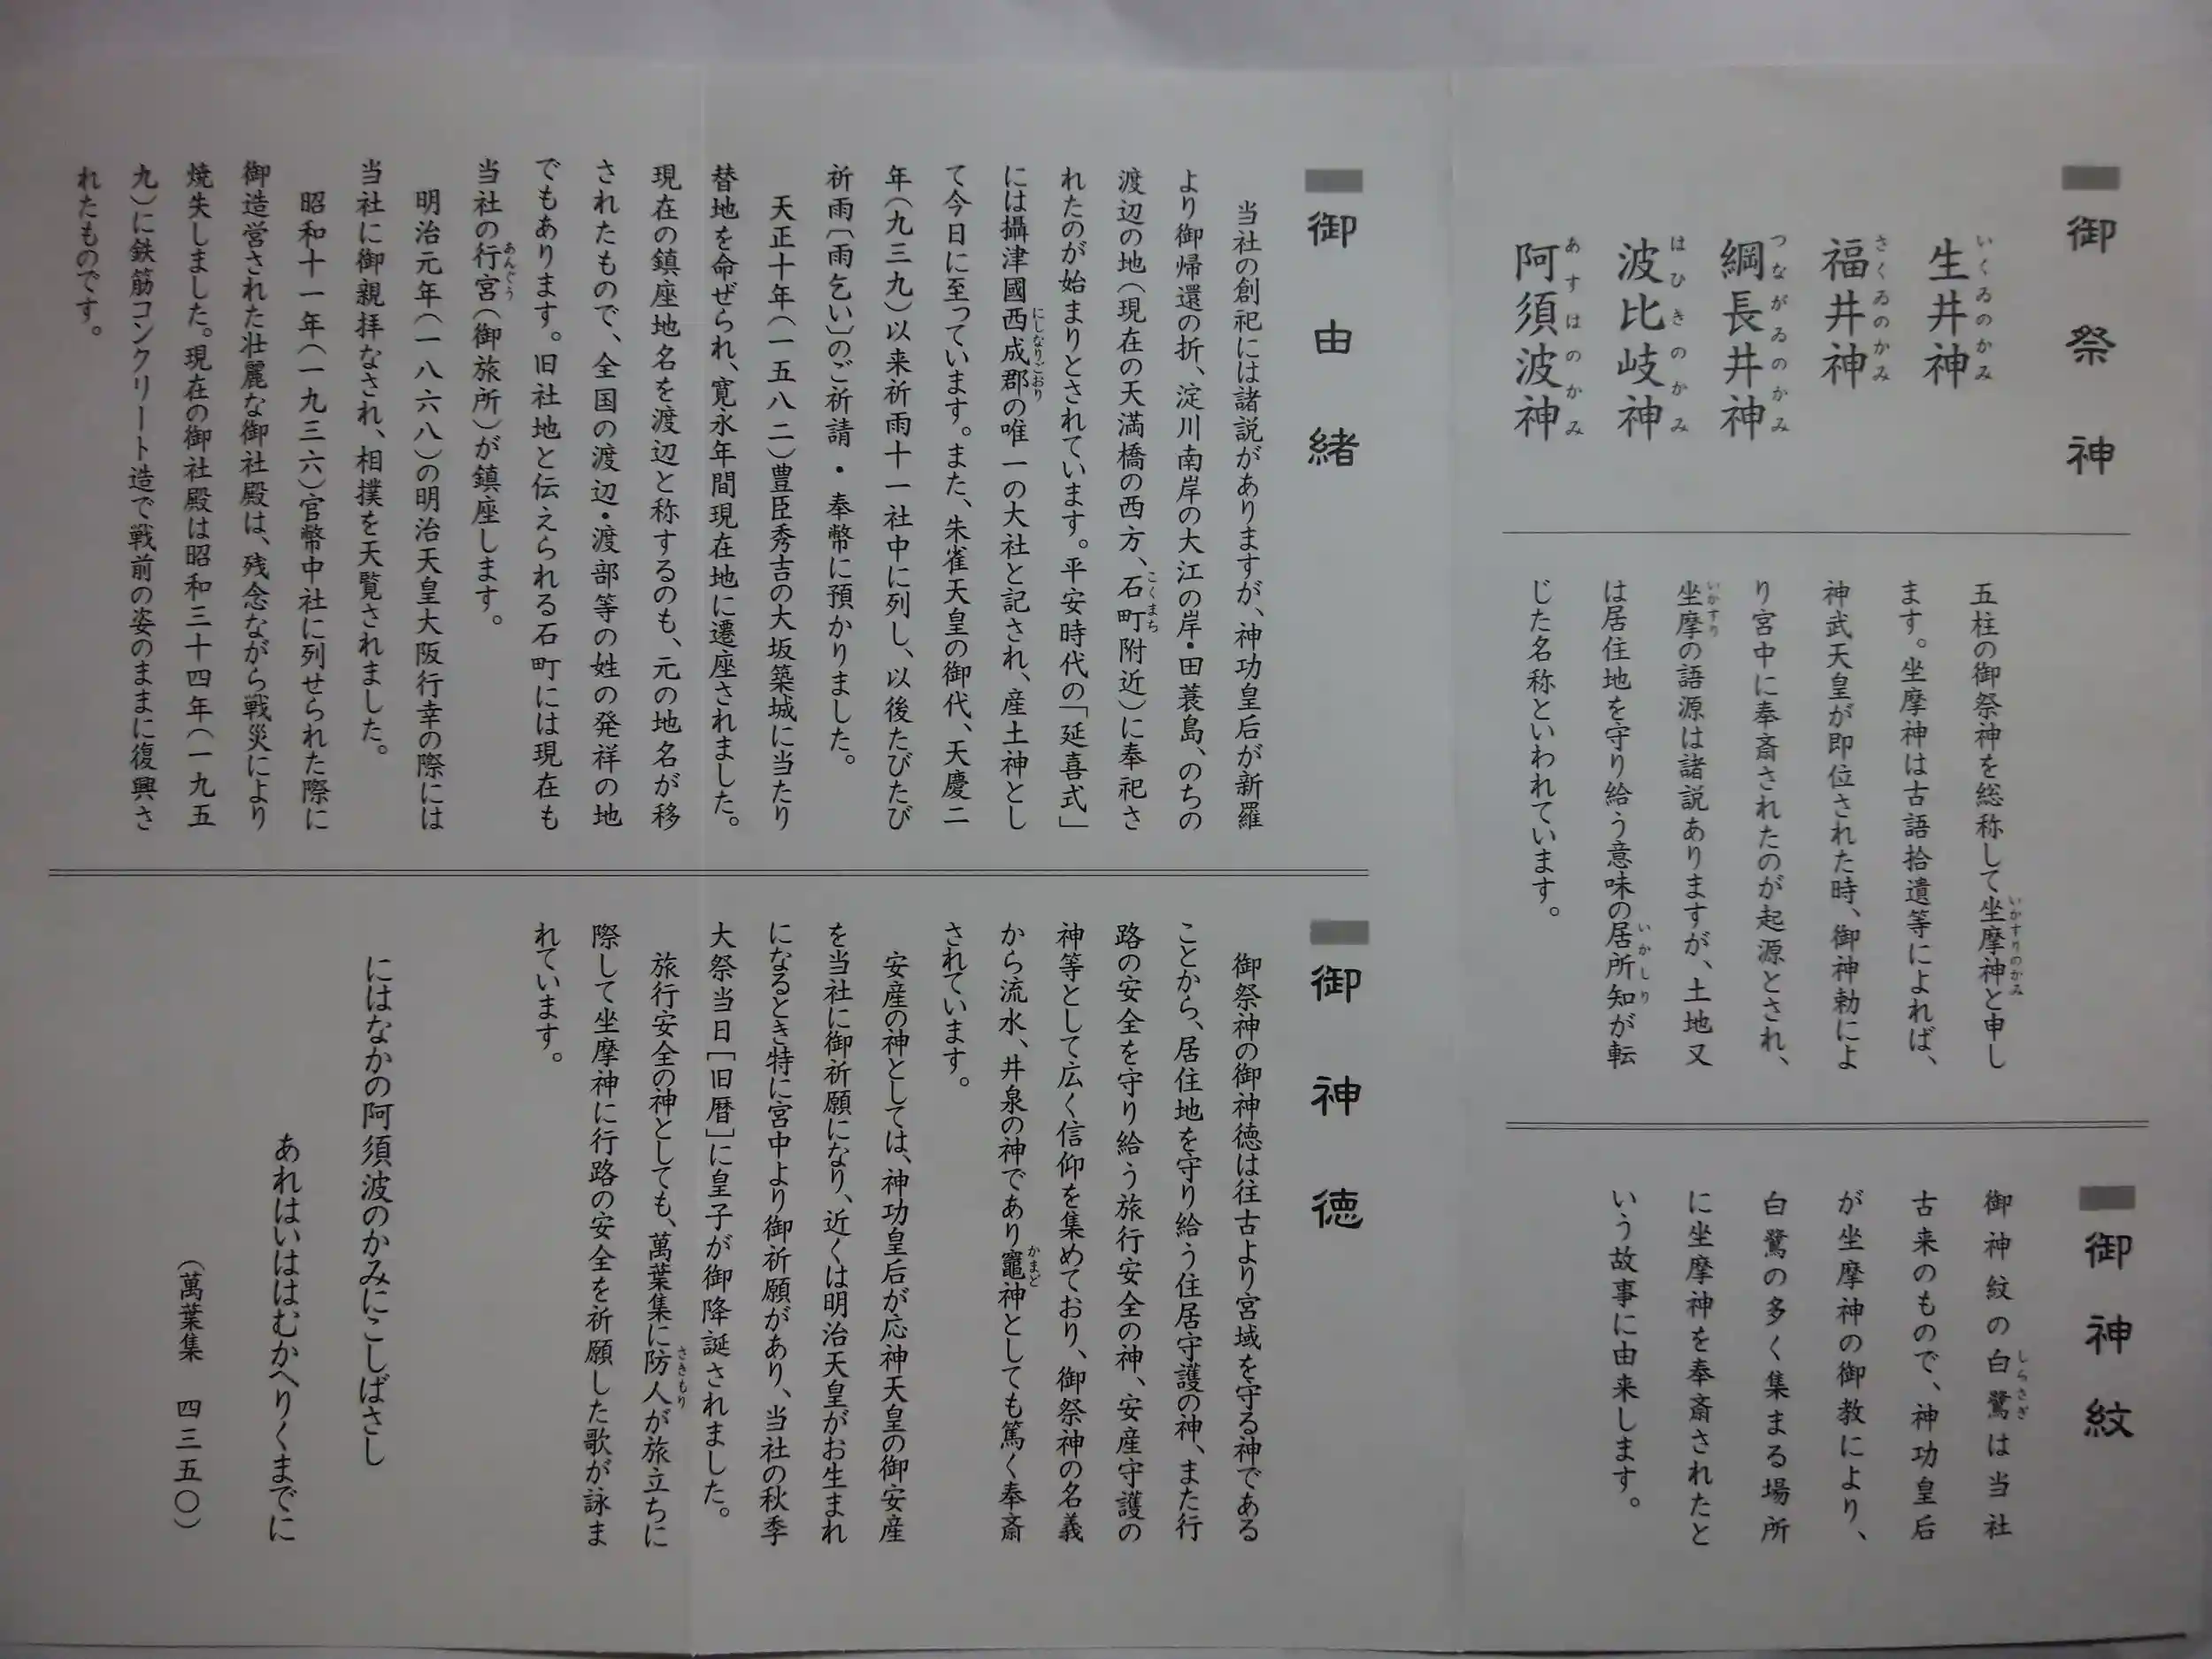 御祭神
生井神
いくゐのかみ
福井神
さくゐのかみ
綱長井神
つながゐのかみ
波比岐神
はひきのかみ
阿須波神
あすはのかみ
五柱の御祭神を総称して坐摩神と申し
いかすりのかみ
ます。坐摩神は古語拾遺等によれば、
神武天皇が即位された時、御神勅によ
り宮中に奉斎されたのが起源とされ、
坐摩の語源は諸説ありますが、土地又
いかすり
は居住地を守り給う意味の居所知が転
いかしり
じた名称といわれています。
御神紋
御神紋の白鷺は当社
しらさぎ
古来のもので、神功皇后
が坐摩神の御教により、
白鷺の多く集まる場所
に坐摩神を奉斎されたと
いう故事に由来します。
御由緒
当社の創祀には諸説がありますが、神功皇后が新羅
より御帰還の折、淀川南岸の大江の岸・田蓑島、のちの
渡辺の地(現在の天満橋の西方、石町附近)に奉祀さ
こくまち
れたのが始まりとされています。平安時代の「延喜式」
には攝津國西成郡の唯一の大社と記され、産土神とし
にしなりごおり
て今日に至っています。また、朱雀天皇の御代、天慶二
年(九三九)以来祈雨十一社中に列し、以後たびたび
祈雨〔雨乞い〕のご祈請・奉幣に預かりました。
天正十年(一五八二)豊臣秀吉の大坂築城に当たり
替地を命ぜられ、寛永年間現在地に遷座されました。
現在の鎮座地名を渡辺と称するのも、元の地名が移
されたもので、全国の渡辺・渡部等の姓の発祥の地
でもあります。旧社地と伝えられる石町には現在も
当社の行宮(御旅所)が鎮座します。
あんぐう
明治元年(一八六八)の明治天皇大阪行幸の際には
当社に御親拝なされ、相撲を天覧されました。
昭和十一年(一九三六)官幣中社に列せられた際に
御造営された壮麗な御社殿は、残念ながら戦災により
焼失しました。現在の御社殿は昭和三十四年(一九五
九)に鉄筋コンクリート造で戦前の姿のままに復興さ
れたものです。
御神徳
御祭神の御神徳は往古より宮域を守る神である
ことから、居住地を守り給う住居守護の神、また行
路の安全を守り給う旅行安全の神、安産守護の
神等として広く信仰を集めており、御祭神の名義
から流水、井泉の神であり竈神としても篤く奉斎
かまど
されています。
安産の神としては、神功皇后が応神天皇の御安産
を当社に御祈願になり、近くは明治天皇がお生まれ
になるとき特に宮中より御祈願があり、当社の秋季
大祭当日[旧暦]に皇子が御降誕されました。
旅行安全の神としても、萬葉集に防人が旅立ちに
さきもり
際して坐摩神に行路の安全を祈願した歌が詠ま
れています。
にはなかの阿須波のかみにこしばさし
あれはいははむかへりくまでに
(萬葉集 四三五〇)